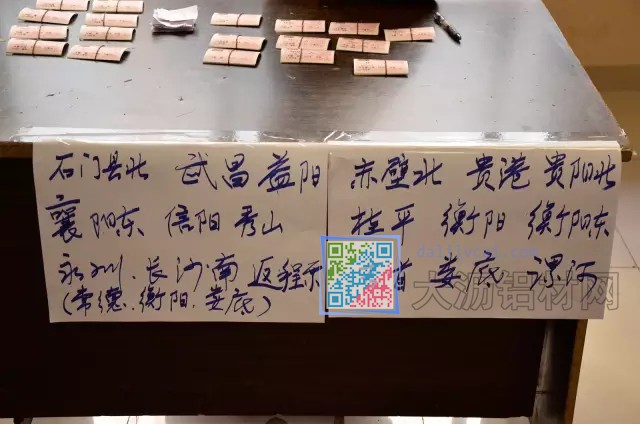 石门县北 武昌 益阳
襄阳东 信阳 秀山
永州.长沙南 返程
(常德.衡阳.娄底)
赤壁北 贵港 贵阳北
桂平 衡阳 衡阳东
首 娄底 漯河
大沥铝材网